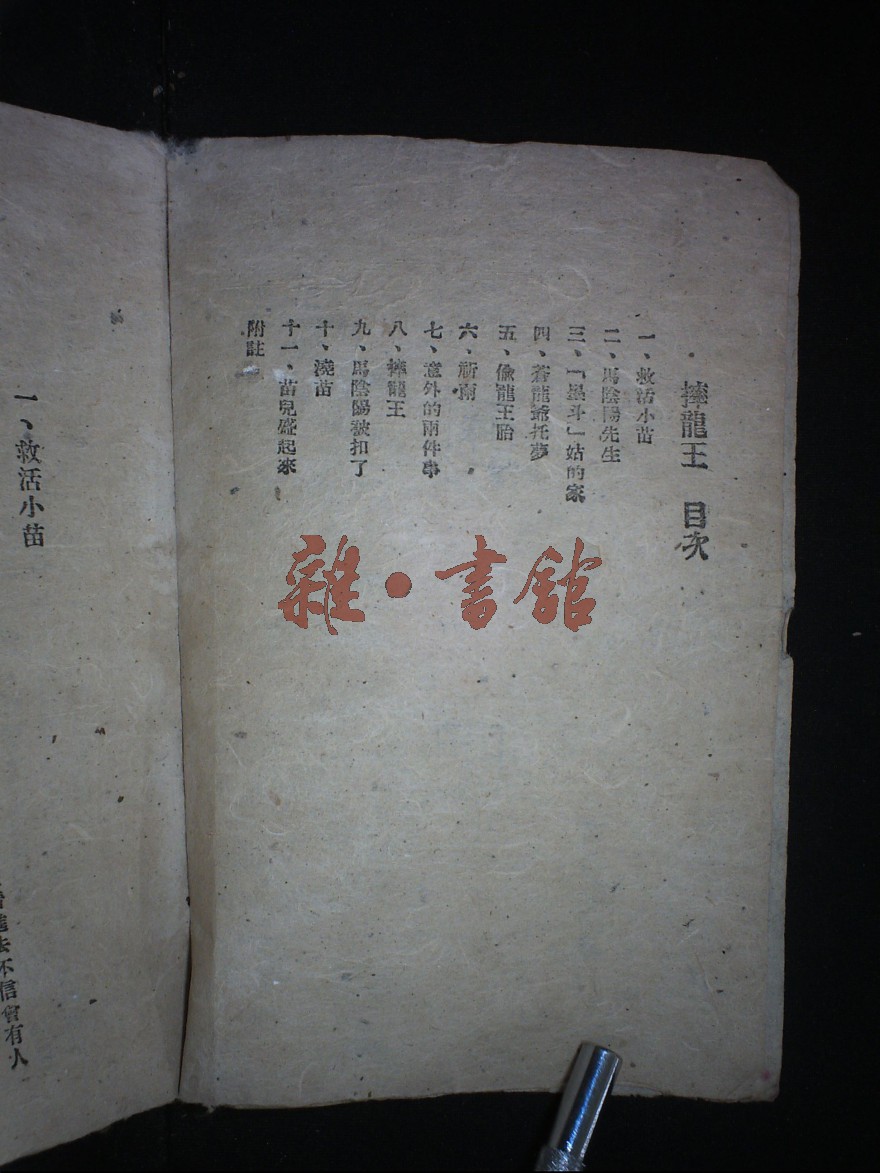 摔龍王　目次
一、救活小苗
二、馬陰陽先生
三、「墨斗」姑的家
四、蒼龍爺托夢
五、偸龍王胎
六、祈雨
七、意外的兩件事
八、摔龍王
九、馬陰陽被扣了
十、澆苗
十一、苗兒盛起來
附註
雜·書館
一、救活小苗
不信會有人